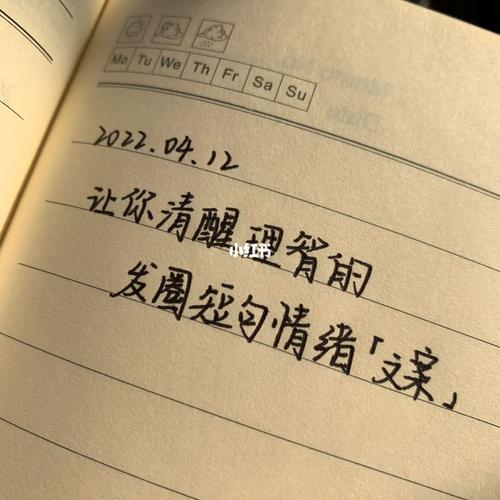 Mo Tu We Th Fr Sa Su
2022.04.12
让你清醒理智的
小红书
发圈短句情绪「文案」